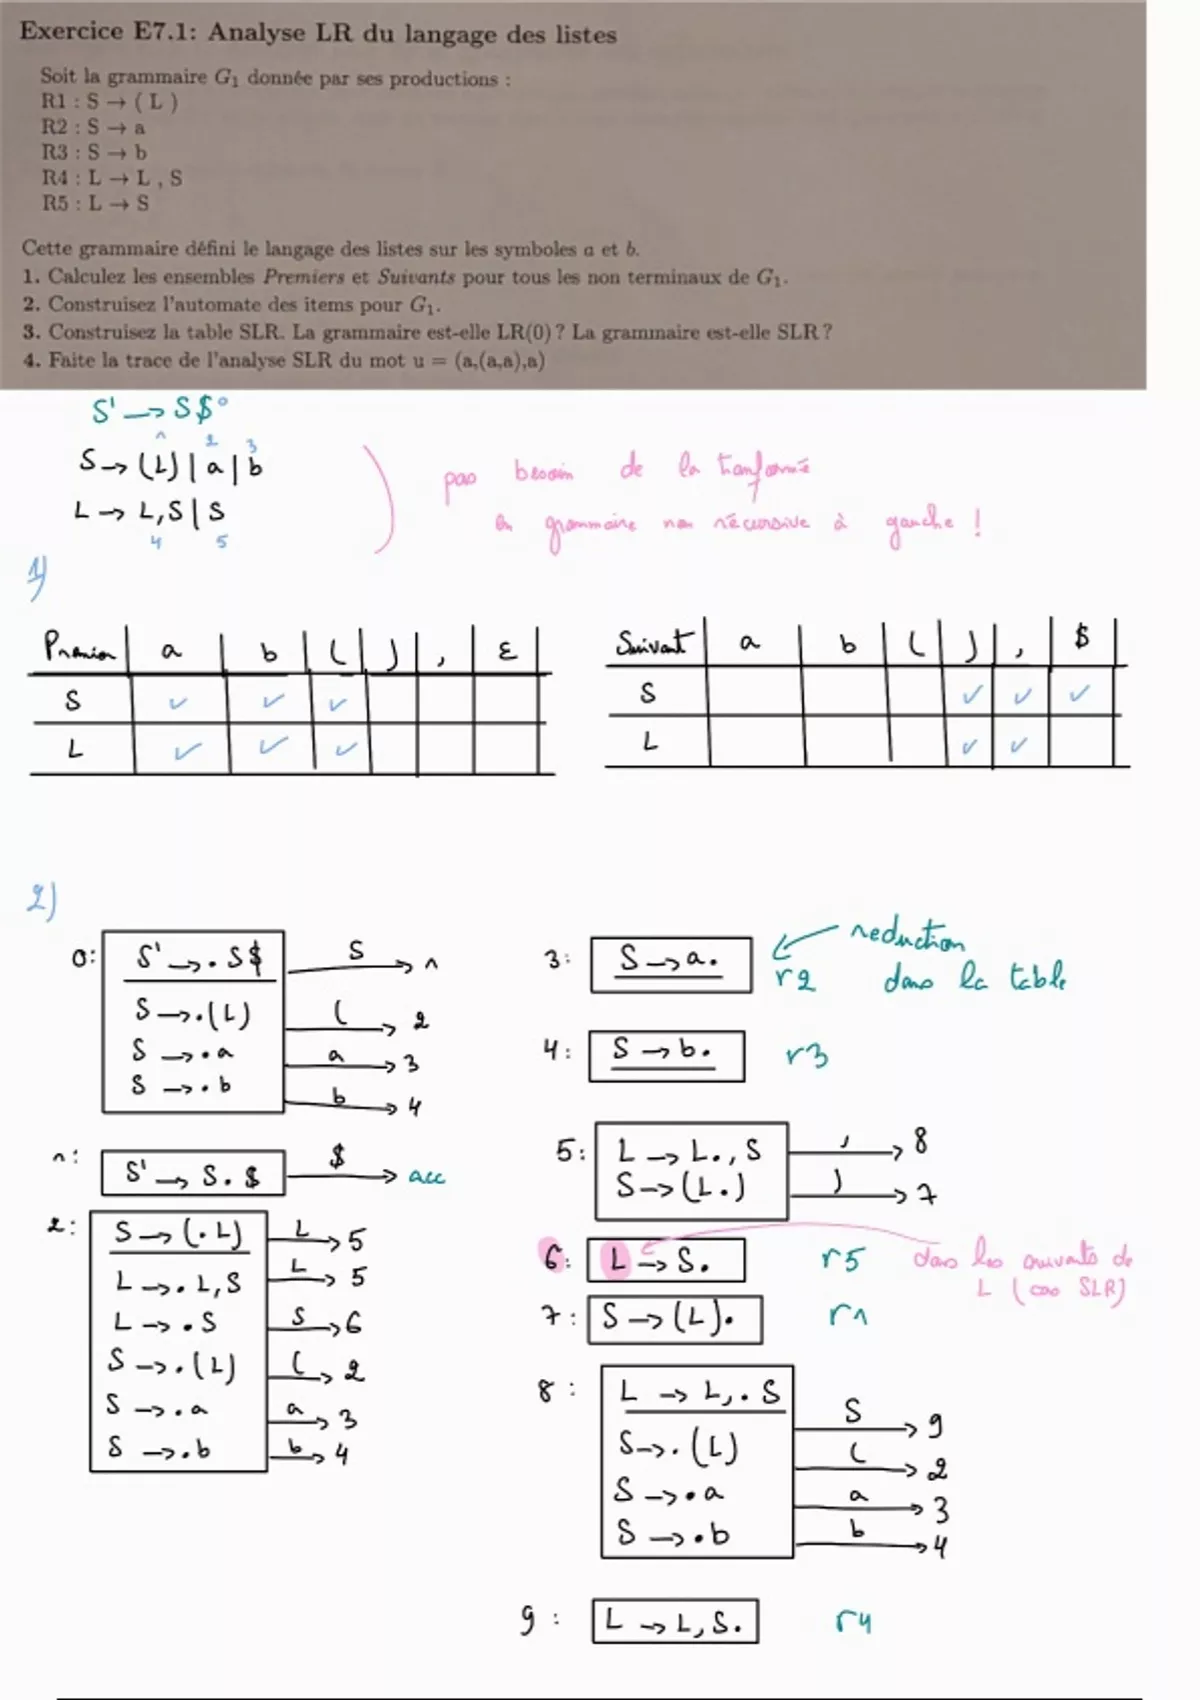 Exercice E7.1: Analyse LR du langage des listes
Soit la grammaire G₁ donnée par ses productions :
R1 : S → ( L )
R2 : S → a
R3 : S → b
R4 : L → L , S
R5 : L → S
Cette grammaire défini le langage des listes sur les symboles a et b.
1. Calculez les ensembles Premiers et Suivants pour tous les non terminaux de G₁.
2. Construisez l'automate des items pour G₁.
3. Construisez la table SLR. La grammaire est-elle LR(0) ? La grammaire est-elle SLR ?
4. Faite la trace de l'analyse SLR du mot u = (a,(a,a),a)
S' → S$ 0
1 2 3
S → (L) | a | b
L → L,S | S
4 5
pas besoin de la tranformé
en grammaire non récursive à gauche !
1)
Premier a b ( ) , ε
S ✓ ✓ ✓
L ✓ ✓ ✓
Suivant a b ( ) , $
S ✓ ✓ ✓
L ✓ ✓
2)
0: S' → . S$ S → 1
S → .(L) ( → 2
S → .a a → 3
S → .b b → 4
1: S' → S.$ $ → acc
2: S → (.L) L → 5
L → .L,S L → 5
L → .S S → 6
S → .(L) ( → 2
S → .a a → 3
S → .b b → 4
3: S → a. r2 ← reduction
dans la table
4: S → b. r3
5: L → L.,S , → 8
S → (L.) ) → 7
6: L → S. r5 dans les suivants de
L (cas SLR)
7: S → (L). r1
8: L → L,.S S → 9
S → .(L) ( → 2
S → .a a → 3
S → .b b → 4
9: L → L,S. r4